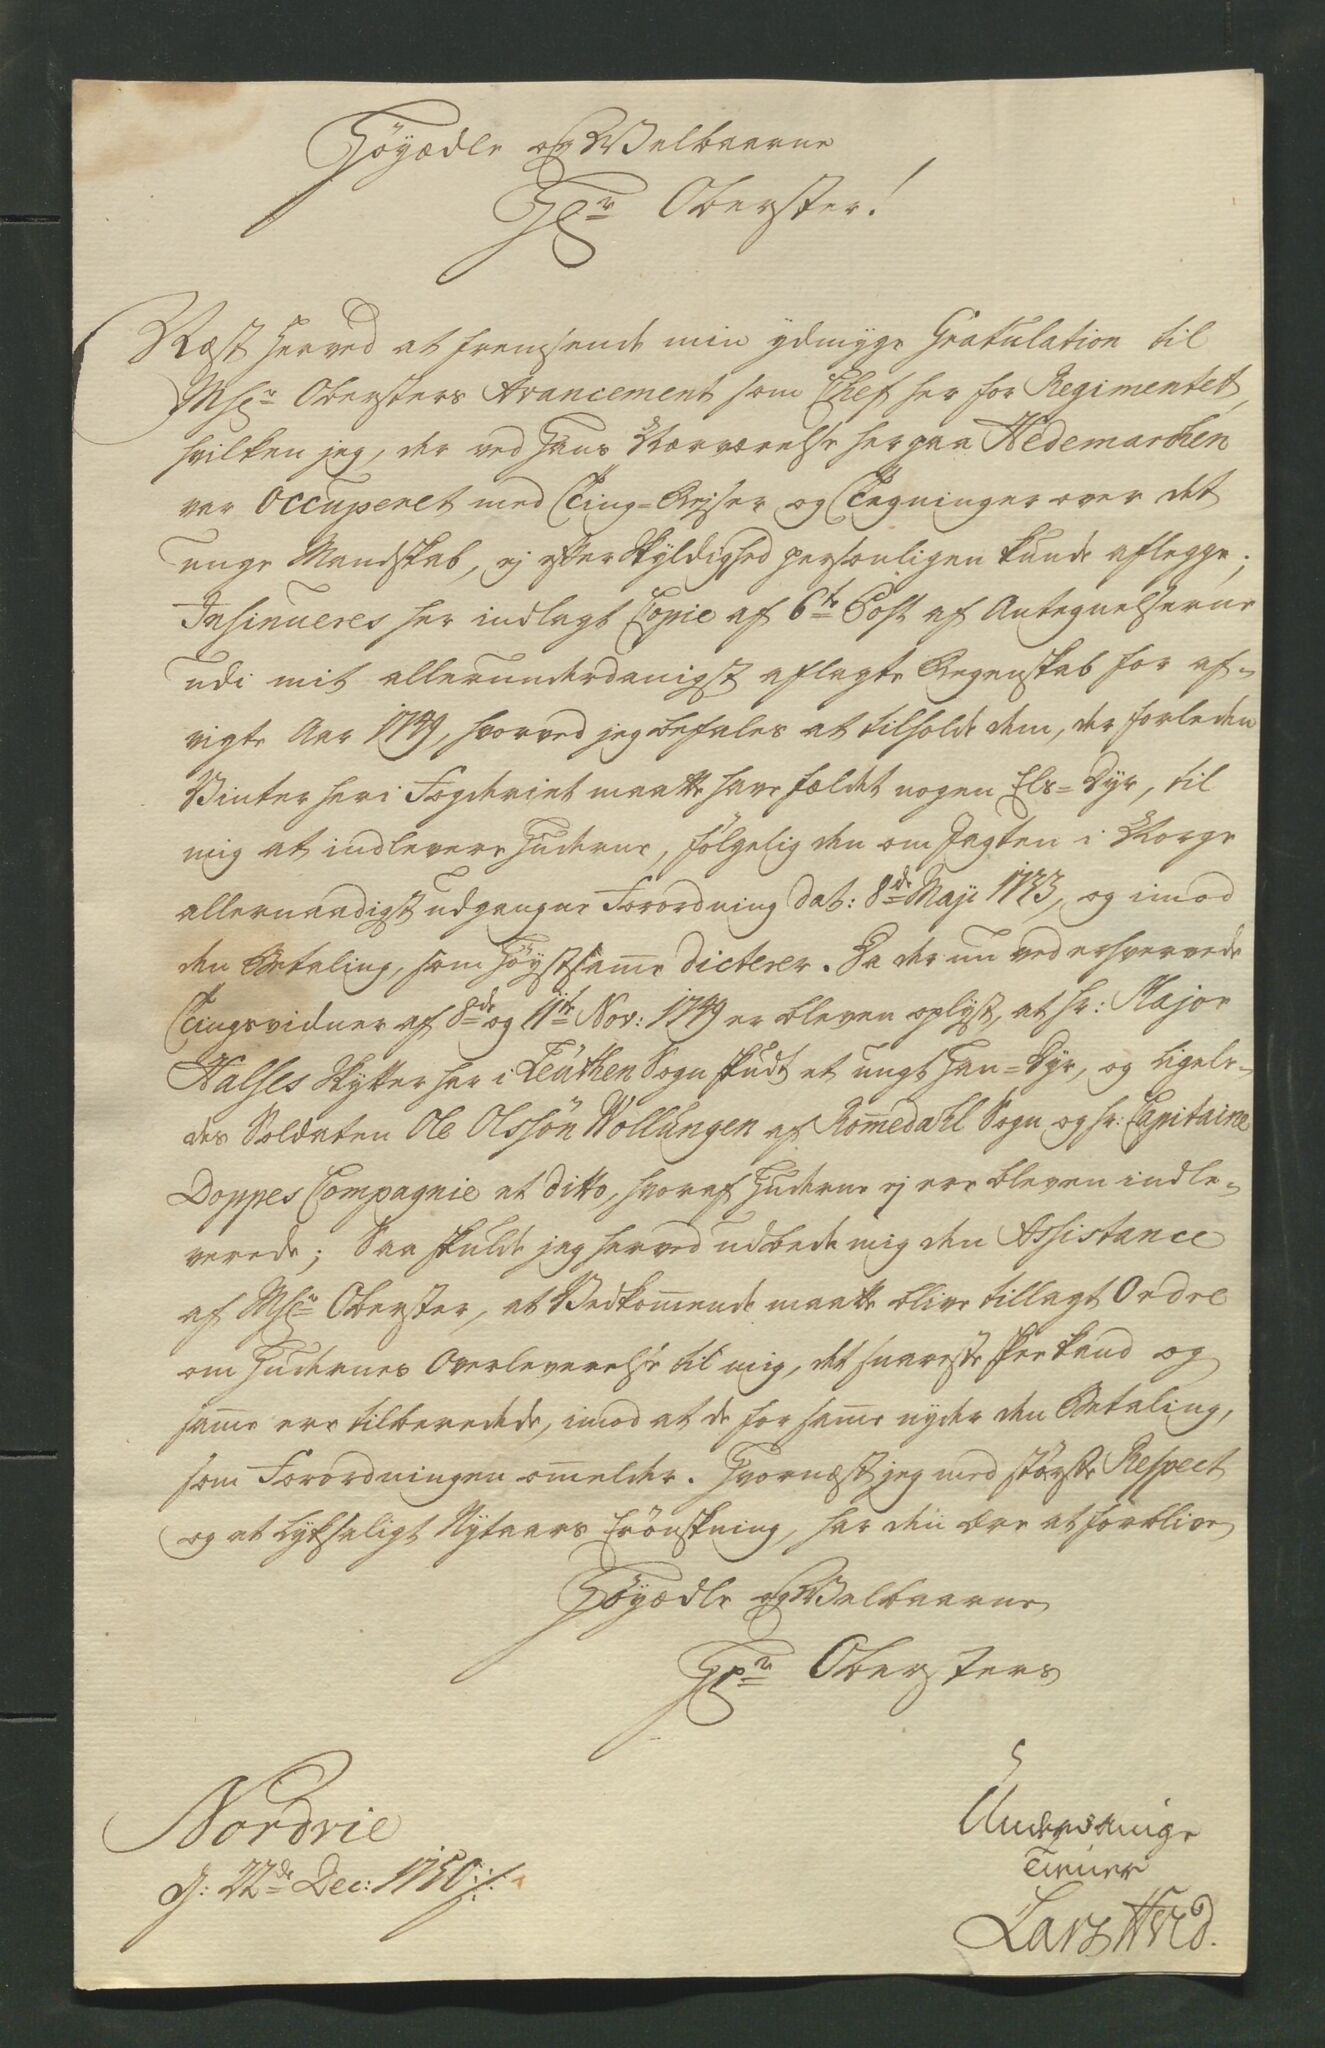 Høyædle og Welbaarne
Hr Oberster!
Næst herved at fremsende min ydmyge Gratulation til
Mhr Obersters Avancement som Chef her for Regimentet,
hvilken jeg, der ved Hans Nærværelse her paa Hedemarchen
var Occuperet med Ting-Rejser og Tegninger over det
unge Mandskab, ej efter Skyldighed personligen kunde aflegge;
Insinueres her indlagt Copie af 6te Post af Antegnelserne
udi mit allerunderdanigst aflagte Regenskab for af-
vigte Aar 1749, hvorved jeg befales at tilholde dem, der forleden
Vinter her i Fogderiet maatte have fældet nogen Els-Dyr, til
mig at indlevere Huderne, følgelig den om Jagten i Norge
allernaadigst udgangne Forordning dat: 8de Maji 1733, og imod
den Betaling, som Høystsamme dicterer. Da der nu ved erhvervede
Tingsvidner af 8de og 11te Nov: 1749 er bleven oplyst, at hr: Major
Halses Skytter her i Leuthen Sogn skudt et ungt Han-Dyr, og ligele-
des Soldaten Ole Olssøn Wollungen af Rommedahl Sogn og hr: Capitaine
Doppes Compagnie et ditto, hvoraf Huderne ej ere bleven indle-
verede; Saa skulde jeg herved udbede mig den Assistance
af Mhr Oberster, at Vedkommende maatte blive tillagt Ordre
om Hudernes Overleverelse til mig, det snareste skee kand og
samme ere tilberedede, imod at de for samme nyder den Betaling,
som Forordningen ommelder. Hvornæst jeg med største Respect
og et lyksaligt Nytaars Erønskning, har den ære at forblive
Høyædle og Welbaarne
Hr Obersters
Nordvie
d: 22de Dec: 1750
Underdanige
Tiener
Lars